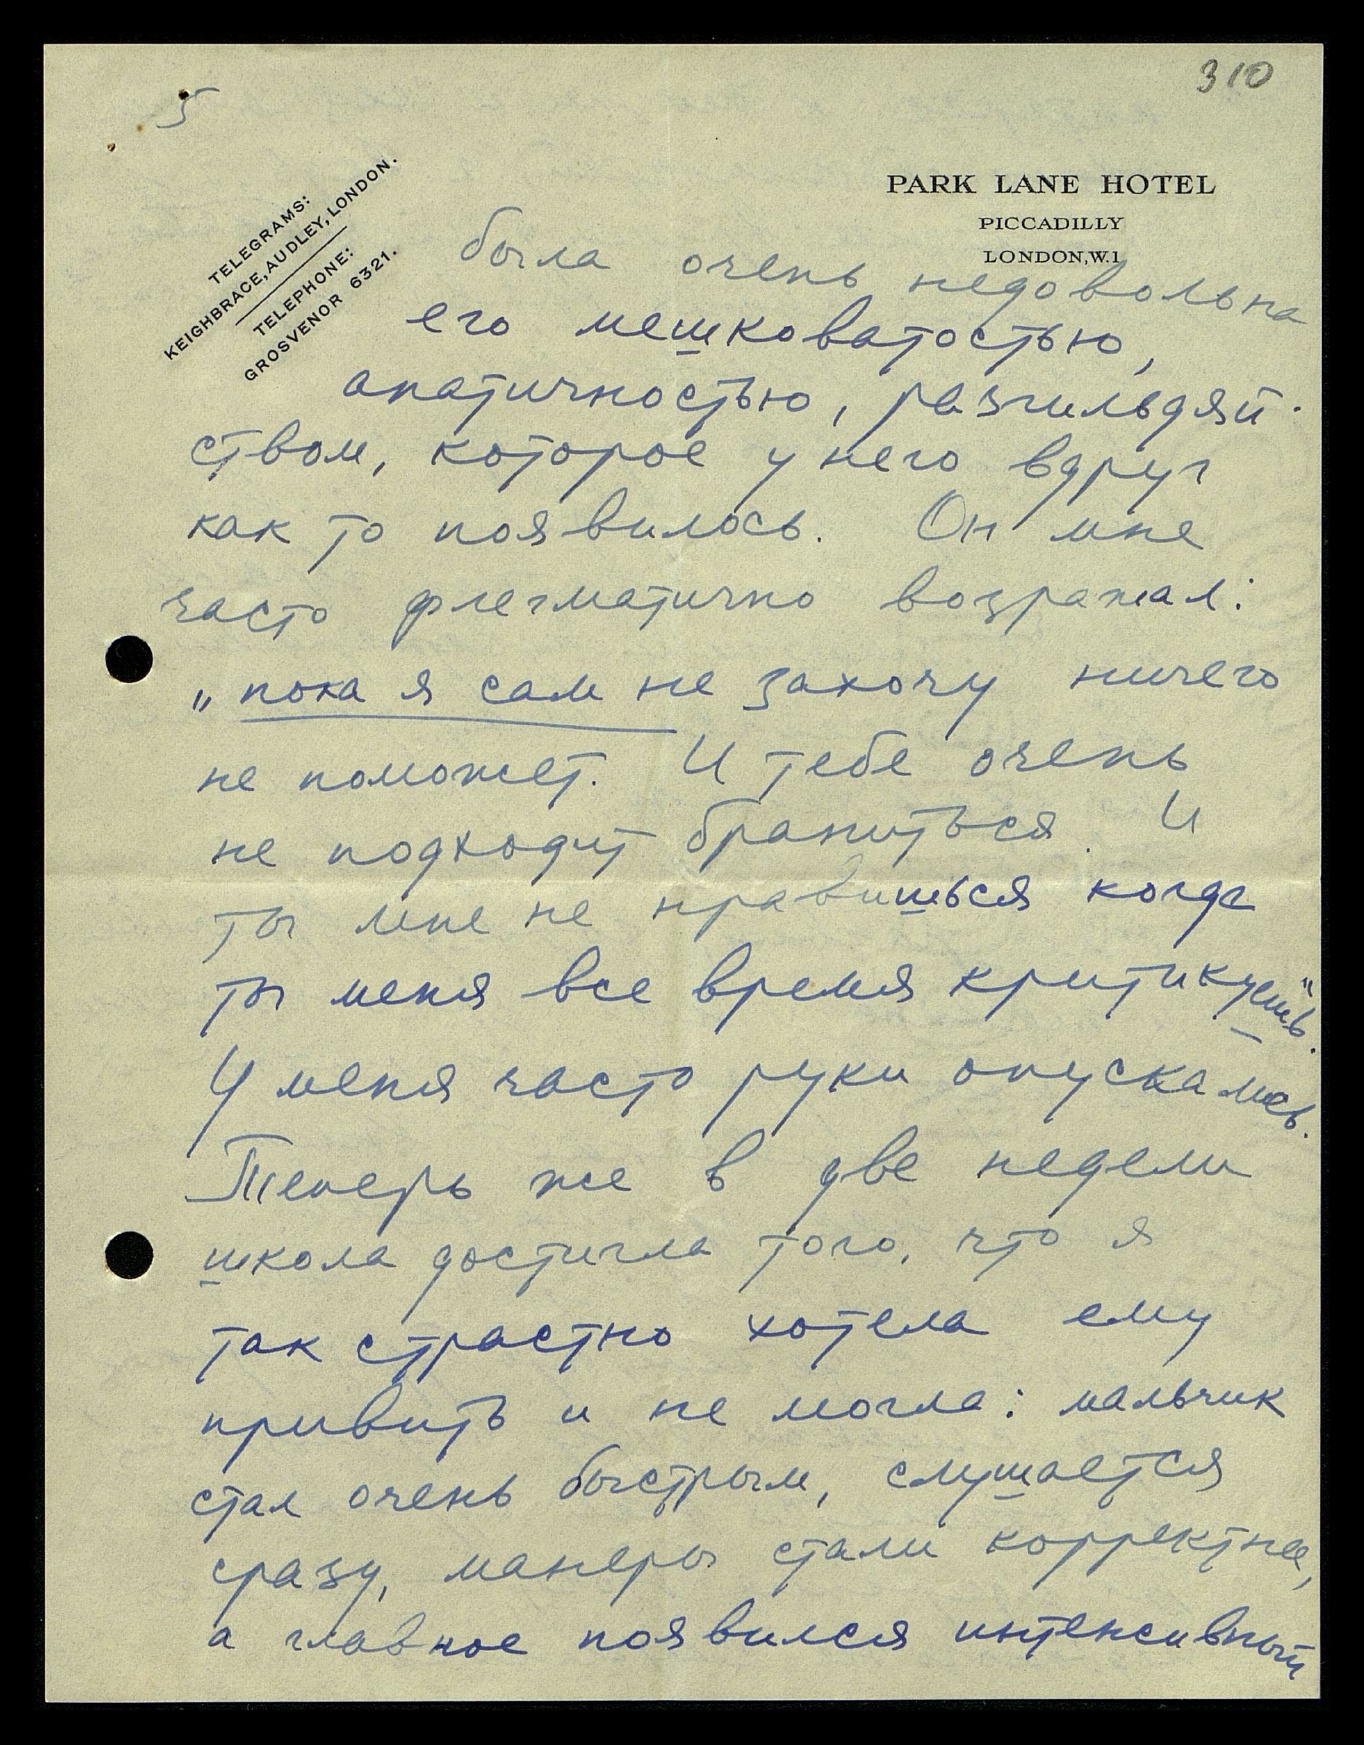 310
5
TELEGRAMS:
KEIGHBRACE, AUDLEY, LONDON.
TELEPHONE:
GROSVENOR 6321.
PARK LANE HOTEL
PICCADILLY
LONDON, W.1
была очень недовольна
его мешковатостью,
апатичностью, разгильдяй-
ством, которое у него вдруг
как то появилось. Он мне
часто флегматично возражал:
„пока я сам не захочу ничего
не поможет. И тебе очень
не подходит браниться. И
ты мне не нравишься когда
ты меня все время критикуешь".
У меня часто руки опускались.
Теперь же в две недели
школа достигла того, что я
так страстно хотела ему
привить и не могла: мальчик
стал очень быстрым, слушается
сразу, манеры стали корректнее,
а главное появился интенсивный